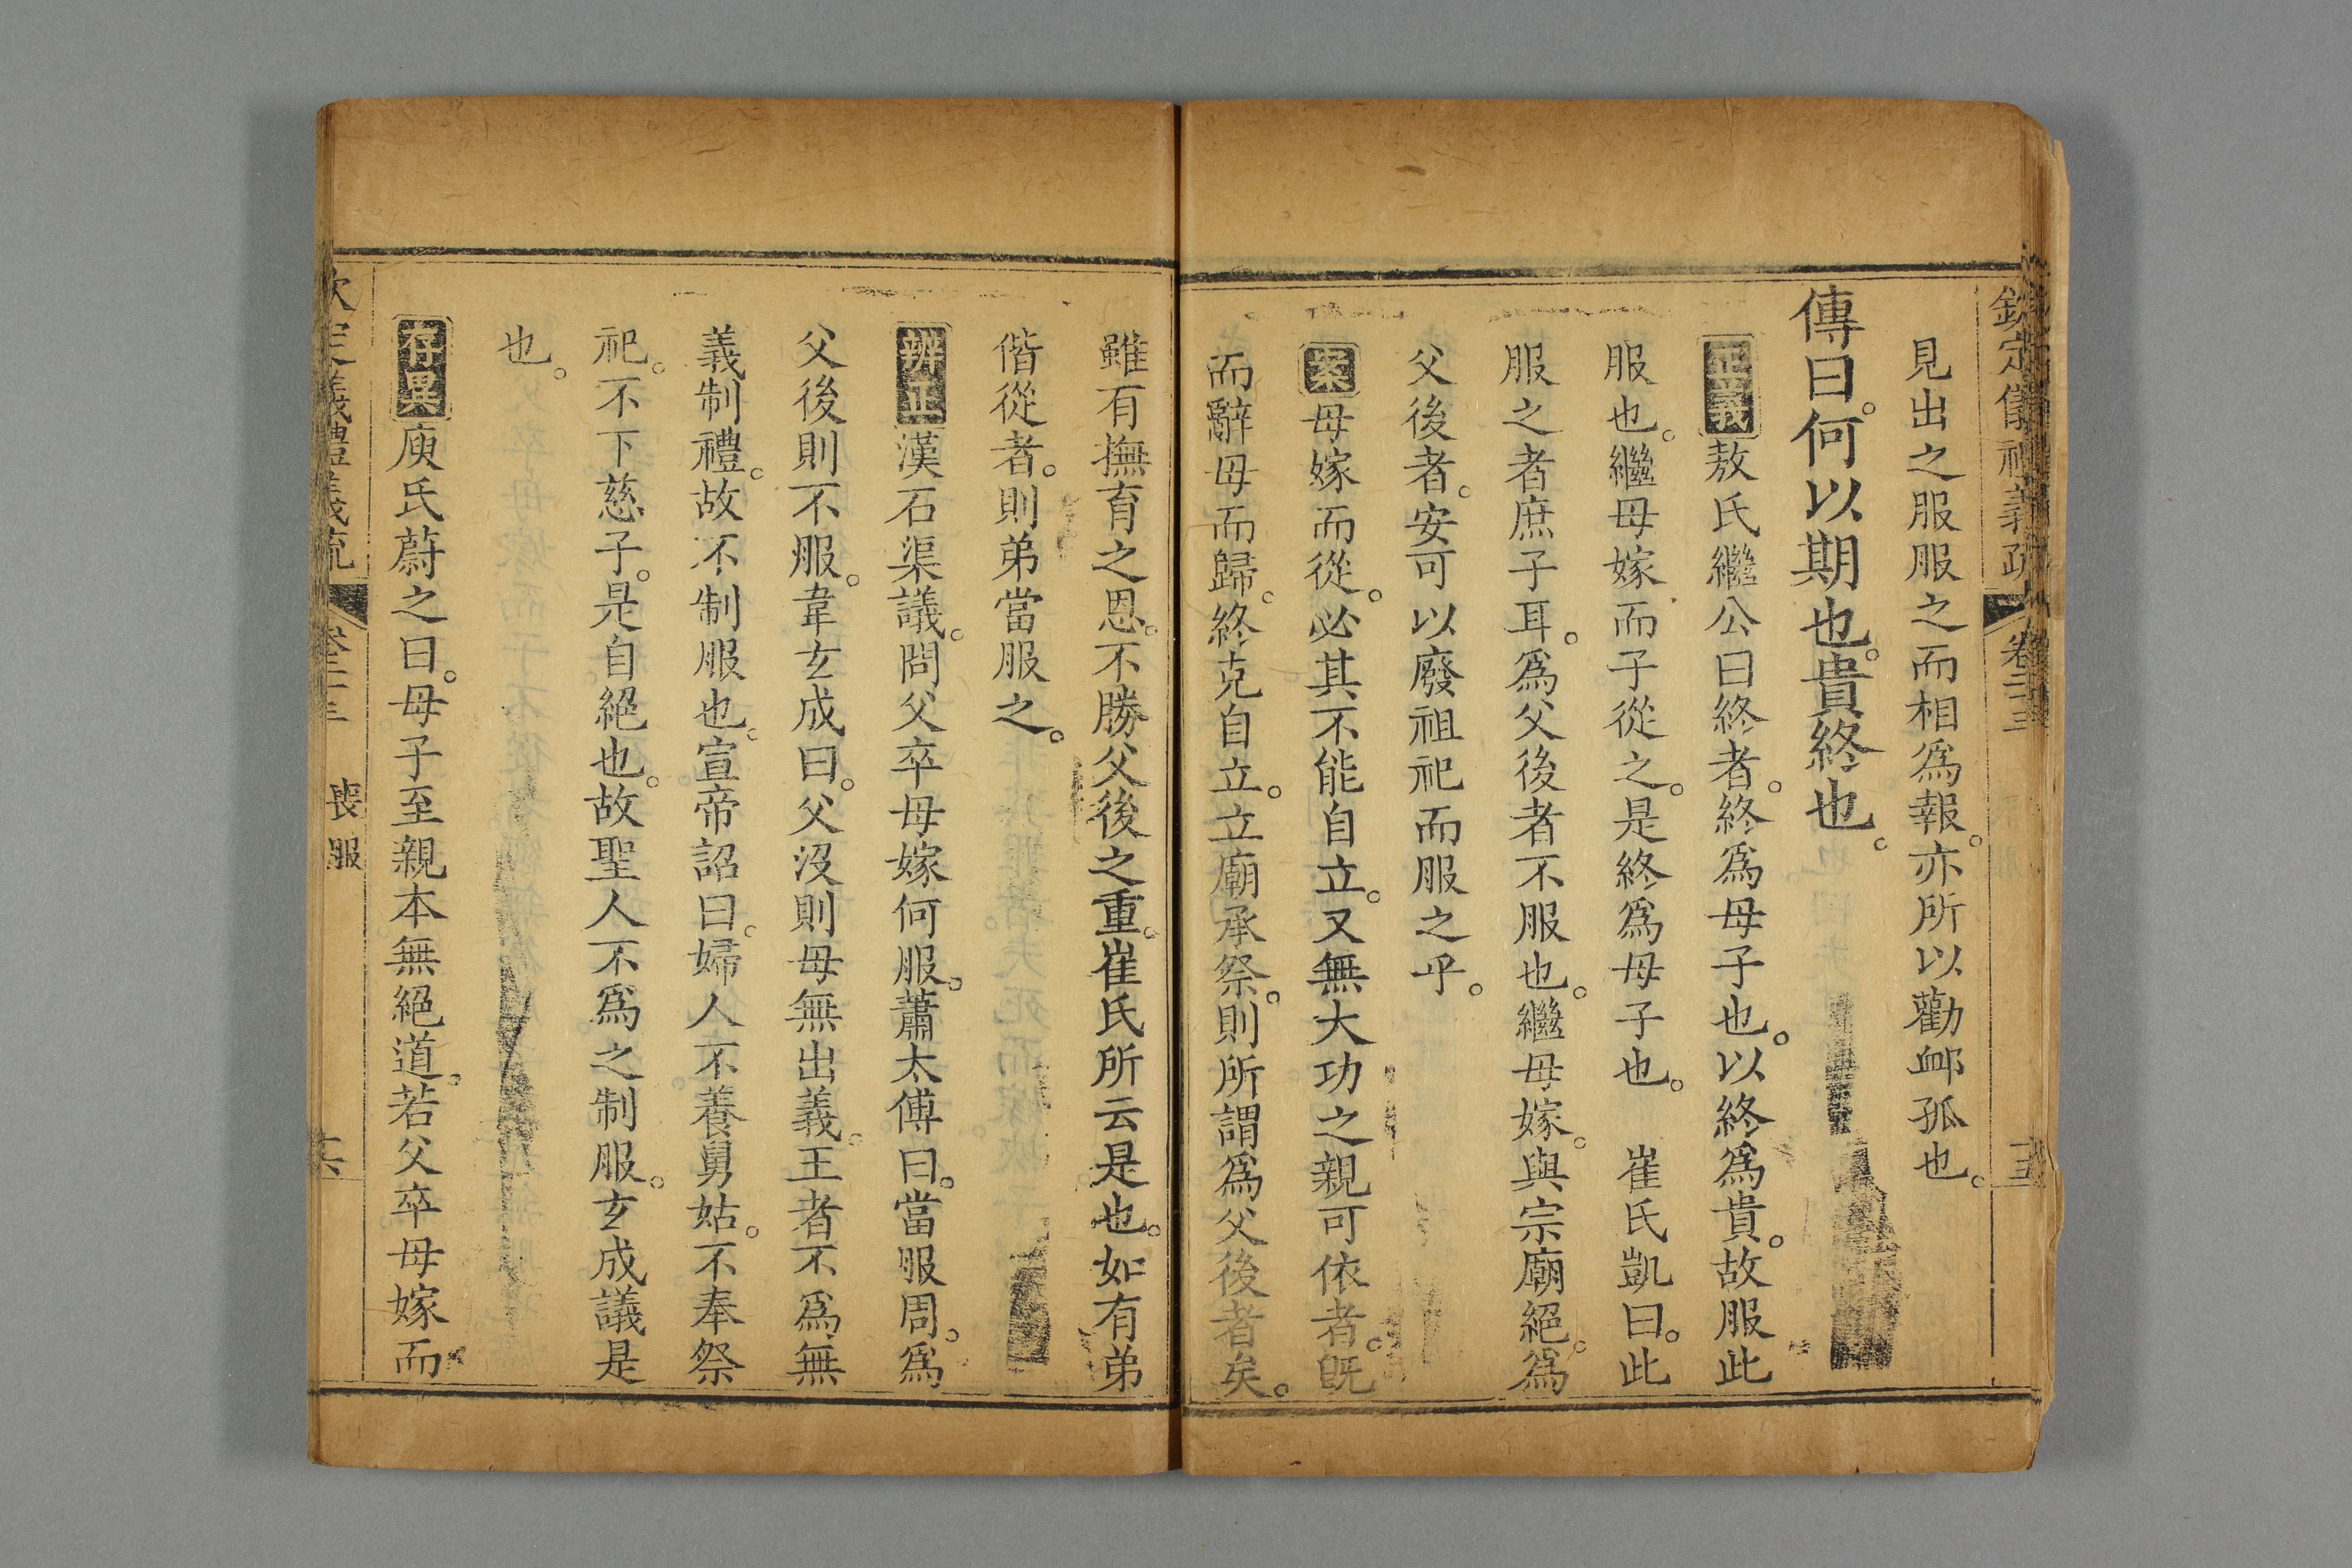 欽定儀禮義疏 卷二十三
見出之服服之而相爲報。亦所以勸卹孤也。
傳曰。何以期也。貴終也。
正義敖氏繼公曰終者。終爲母子也。以終爲貴。故服此
服也。繼母嫁而子從之。是終爲母子也。 崔氏凱曰。此
服之者庶子耳。爲父後者不服也。繼母嫁。與宗廟絕。爲
父後者。安可以廢祖祀而服之乎。
案母嫁而從。必其不能自立。又無大功之親可依者。旣
而辭母而歸。終克自立。立廟承祭。則所謂爲父後者矣。
雖有撫育之恩。不勝父後之重。崔氏所云是也。如有弟
偕從者。則弟當服之。
辨正漢石渠議。問父卒母嫁何服。蕭太傅曰。當服周。爲
父後則不服。韋玄成曰。父沒則母無出義。王者不爲無
義制禮。故不制服也。宣帝詔曰。婦人不養舅姑。不奉祭
祀。不下慈子。是自絕也。故聖人不爲之制服。玄成議是
也。
存異庾氏蔚之曰。母子至親本無絕道。若父卒母嫁而
欽定儀禮義疏 卷二十三 喪服